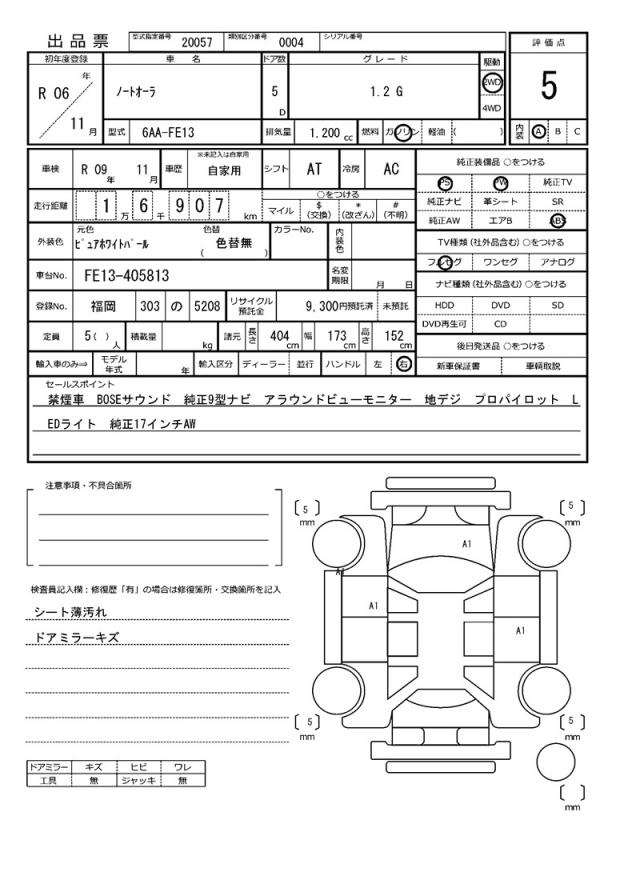 出品票 型式指定番号 20057 類別区分番号 0004 シリアル番号
評価点
5
内装 A B C
初年度登録 車名 ドア数 グレード 駆動
R 06 年 ノートオーラ 5 D 1.2 G 2WD
4WD
11 月 型式 6AA-FE13 排気量 1.200 cc 燃料 ガソリン 軽油 ( )
車検 R 09 年 11 月 車歴 ※未記入は自家用 自家用 シフト AT 冷房 AC
走行距離 1 万 6 千 9 0 7 km ○をつける
マイル $(交換) *(改ざん) #(不明)
外装色 元色 ピュアホワイトパール 色替 ( 色替無 ) カラーNo. 内装色
車台No. FE13-405813 名変期限 月 日
登録No. 福岡 303 の 5208 リサイクル預託金 9,300円預託済 未預託
定員 5 ( ) 人 積載量 kg 諸元 長さ 404 cm 幅 173 cm 高さ 152 cm
輸入車のみ⇒ モデル年式 年 輸入区分 ディーラー 並行 ハンドル 左 右
純正装備品 ○をつける
PS PW 純正TV
純正ナビ 革シート SR
純正AW エアB ABS
TV種類 (社外品含む) ○をつける
フルセグ ワンセグ アナログ
ナビ種類 (社外品含む) ○をつける
HDD DVD SD
DVD再生可 CD
後日発送品 ○をつける
新車保証書 車輌取説
セールスポイント
禁煙車 BOSEサウンド 純正9型ナビ アラウンドビューモニター 地デジ プロパイロット L
EDライト 純正17インチAW
注意事項・不具合箇所
検査員記入欄：修復歴「有」の場合は修復箇所・交換箇所を記入
シート薄汚れ
ドアミラーキズ
ドアミラー キズ ヒビ ワレ
工具 無 ジャッキ 無
5 mm
5 mm
A1
A1
A1
A1
5 mm
5 mm
mm